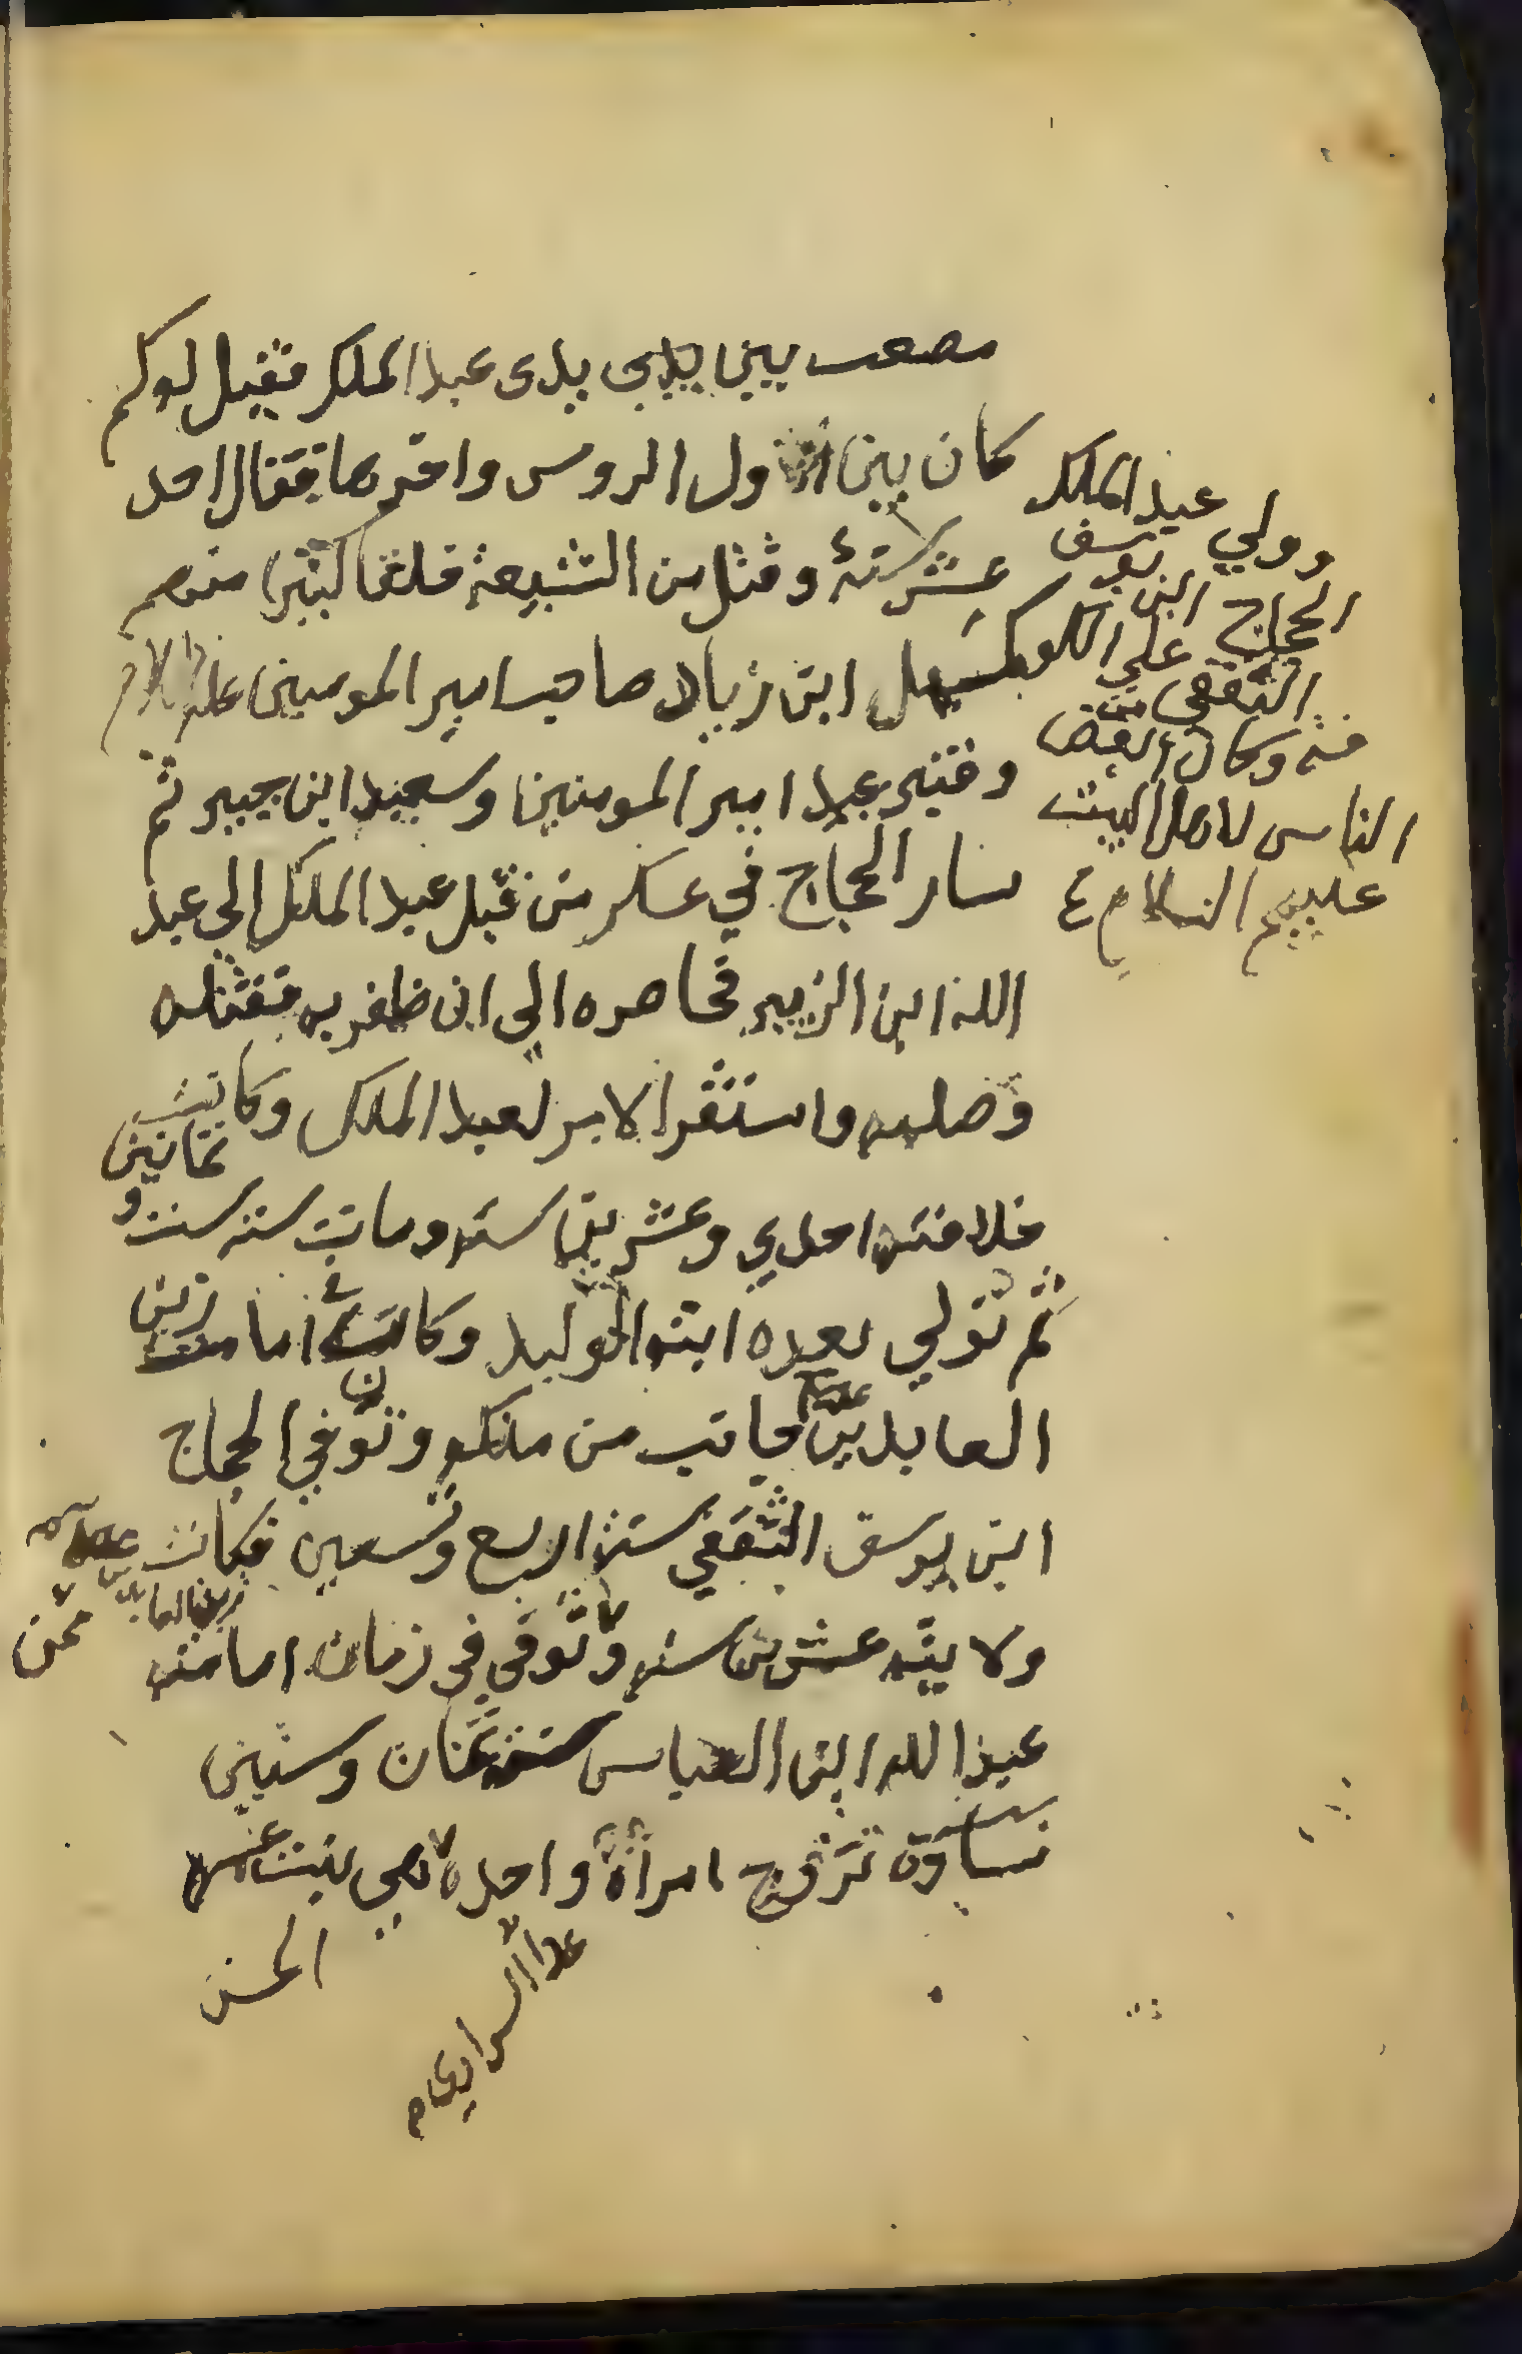 مصعب بين يدي عبد الملك فقيل لوكم
كان بين اول الروس واخرها فقال احد
عشر سنة وقتل من الشيعة خلقا كثيرا منهم
كسهيل ابن زياد صاحب امير المومنين
وقنبر عبد امير المومنين وسعيد ابن جبير ثم
سار الحجاج في عسكر من قبل عبد الملك الي عبد
الله ابن الزبير فحاصره الى ان ظفر به فقتله
وصلبه واستقر الامر لعبد الملك وكانت
خلافته احدي وعشرين سنه ومات سنه ست و
ثمانين
ثم تولي بعده ابنه الوليد وكان في امامت زين
العابدين جانب من ملكه وتوفي الحجاج
ابن يوسف الثقفي سنة اربع وتسعين فكانت
ولايته عشرين سنه وتوفي في زمان امامته
زين العابدين
ممن
عبد الله ابن العباس سنة ثمان وستين
نساوه تزوج امراة واحده وهي بنت عمه
الحسن
عدا السراري
وولي عبد الملك
الحجاج ابن يوسف
الثقفي على الكو
فه وكان ابغض
الناس لاهل البيت
عليهم السلام